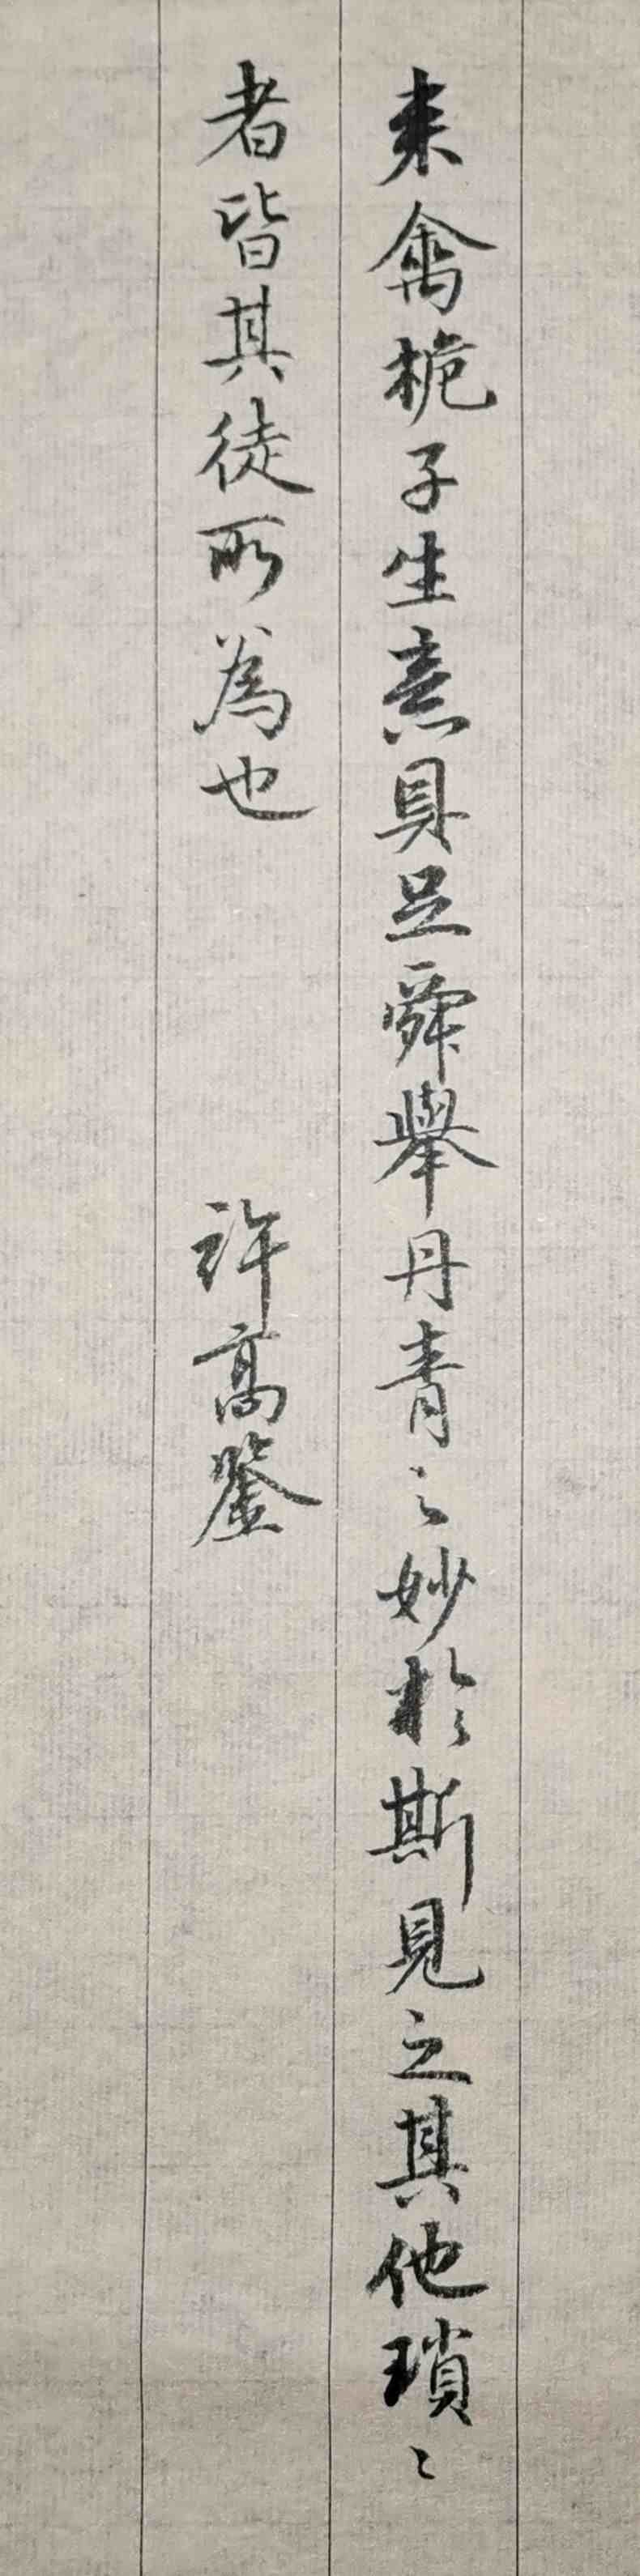 来禽栀子生意具足舜舉丹青之妙於斯見之其他瑣〻
者皆其徒所為也　許高鑒